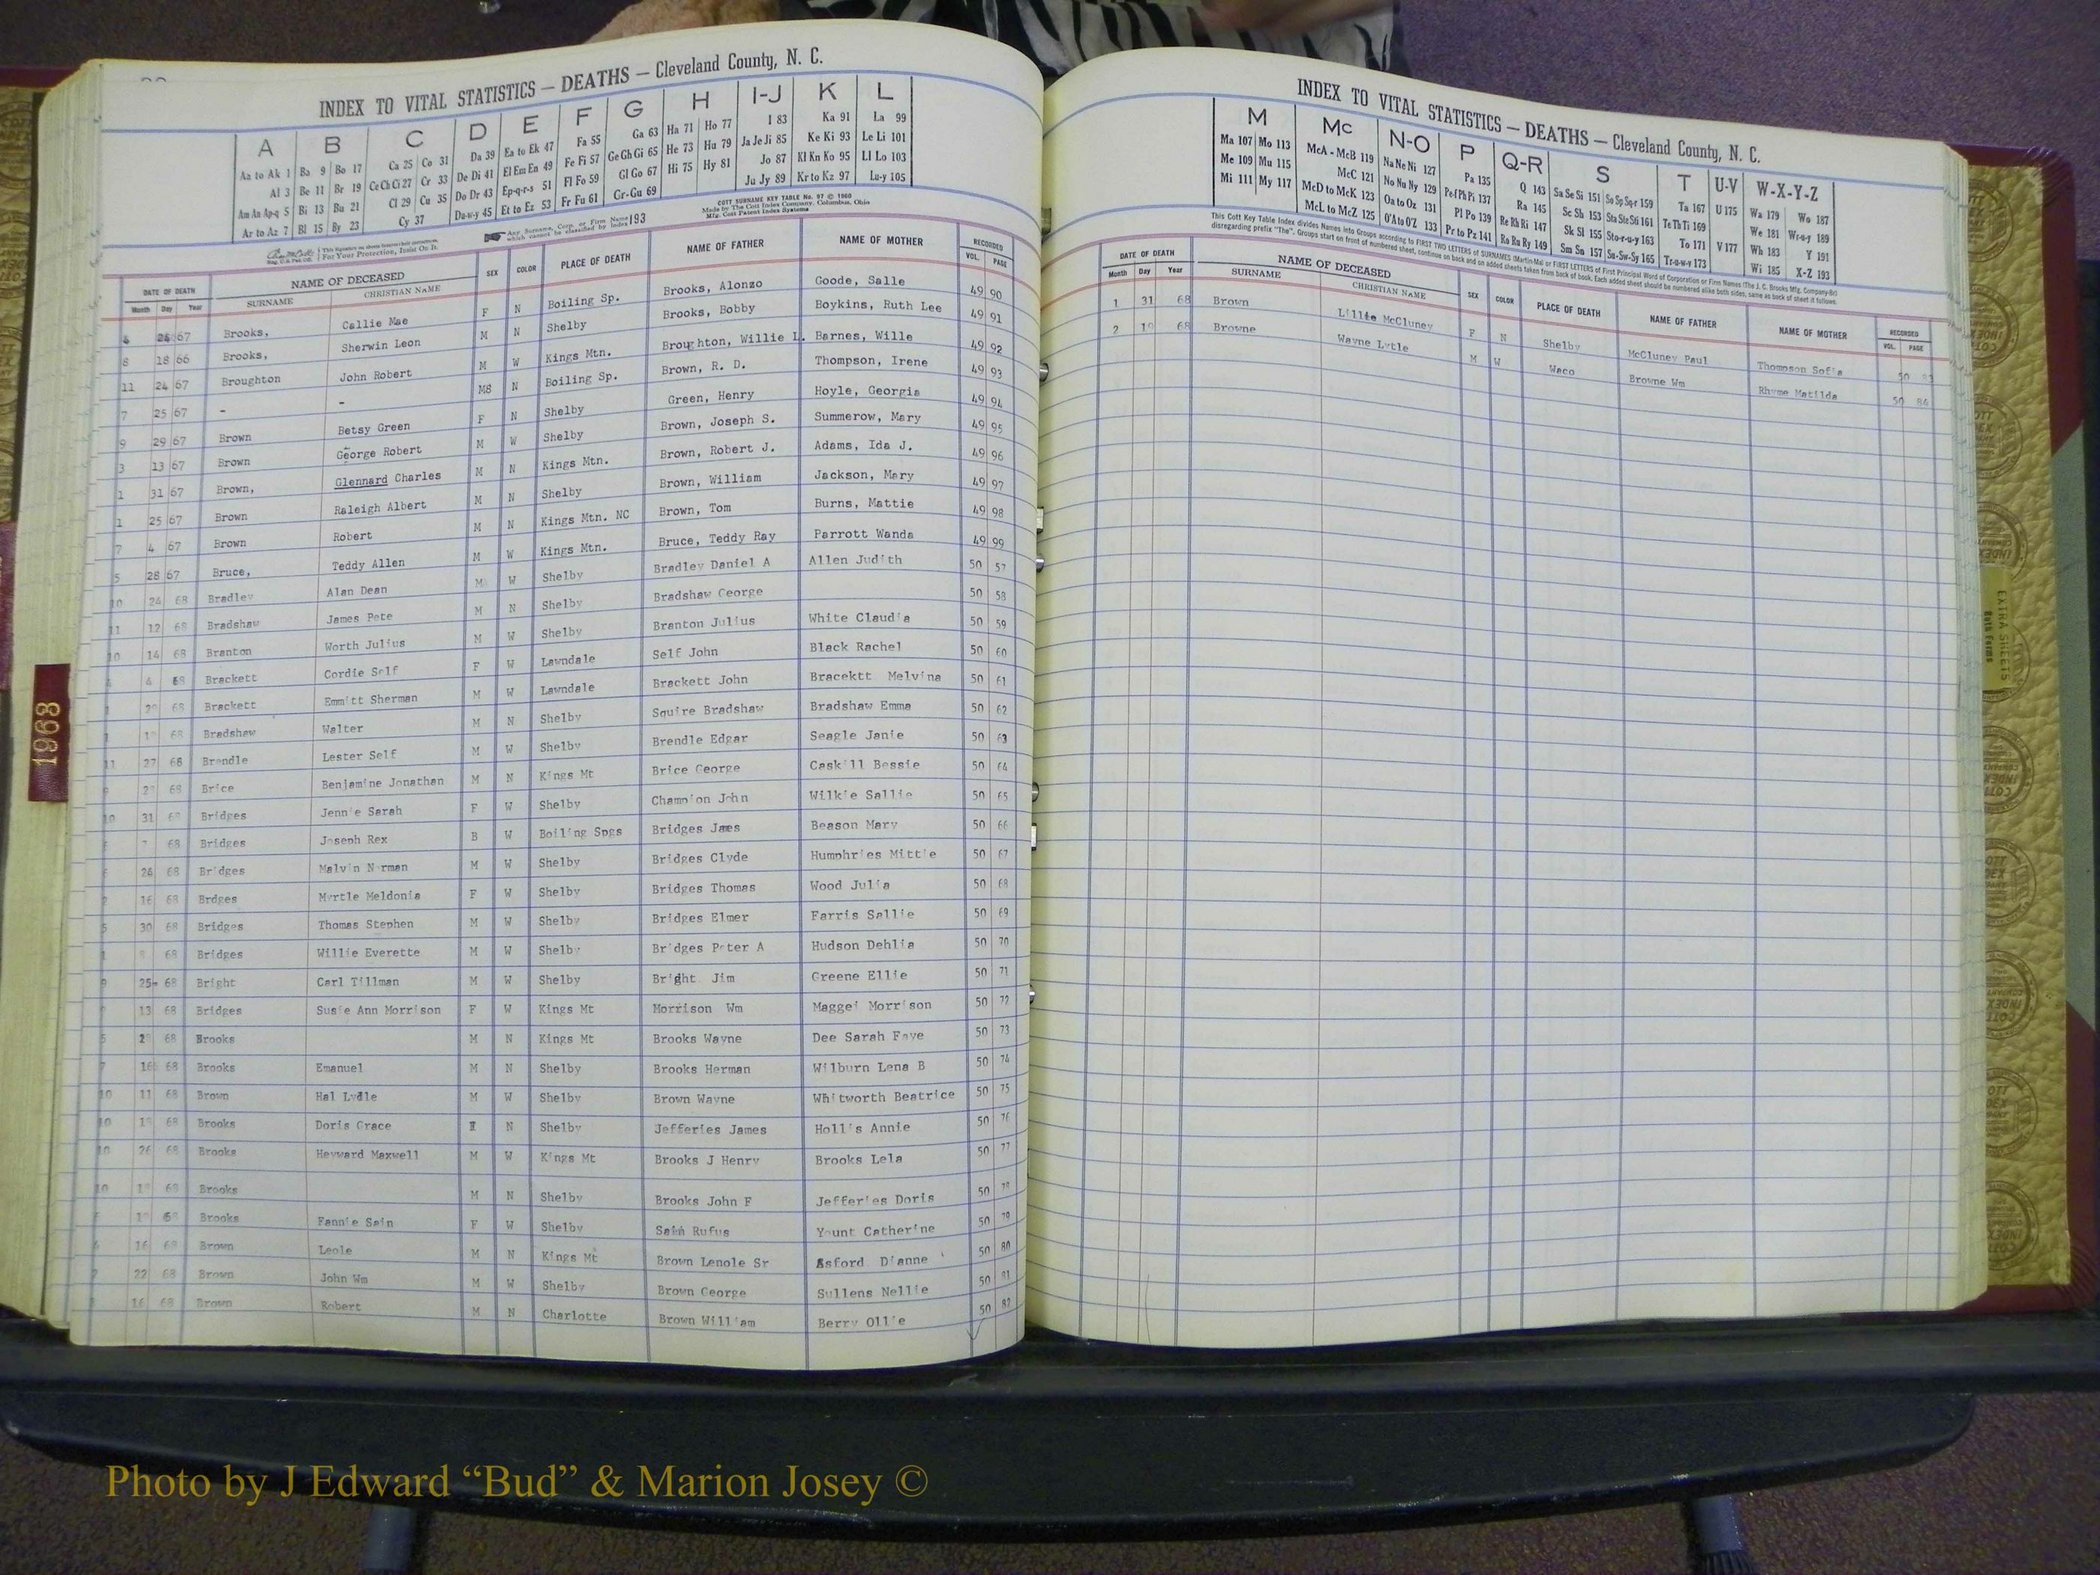 INDEX TO VITAL STATISTICS — DEATHS — Cleveland County, N. C.
A B C D E F G H I-J K L
Aa to Ak 1 Ba 9 Bo 17 Ca 25 Co 31 Da 39 Ea to Ek 47 Fa 55 Ga 63 Ha 71 Ho 77 I 83 Ka 91 La 99
Al 3 Be 11 Br 19 Ce Ch Ci 27 Cr 33 De Di 41 El Em En 49 Fe Fi 57 Ge Gh Gi 65 He 73 Hu 79 Ja Je Ji 85 Ke Ki 93 Le Li 101
Am An Ap-q 5 Bi 13 Bu 21 Cl 29 Cu 35 Do Dr 43 Ep-q-r-s 51 Fl Fo 59 Gl Go 67 Hi 75 Hy 81 Jo 87 Kl Kn Ko 95 Ll Lo 103
Ar to Az 7 Bl 15 By 23 Cy 37 Du-w-y 45 Et to Ez 53 Fr Fu 61 Gr-Gu 69 Ju Jy 89 Kr to Kz 97 Lu-y 105
COTT SURNAME KEY TABLE No. 97 © 1960
Made by The Cott Index Company, Columbus, Ohio
Mfg. Cott Patent Index Systems
For Your Protection, Insist On It.
Any Surname, Corp. or Firm Name which cannot be classified by Index 193
DATE OF DEATH NAME OF DECEASED SEX COLOR PLACE OF DEATH NAME OF FATHER NAME OF MOTHER RECORDED
Month Day Year SURNAME CHRISTIAN NAME VOL. PAGE
67 Brooks, Callie Mae F N Boiling Sp. Brooks, Alonzo Goode, Salle 49 90
8 18 66 Brooks, Sherwin Leon M N Shelby Brooks, Bobby Boykins, Ruth Lee 49 91
11 24 67 Broughton John Robert M W Kings Mtn. Broughton, Willie L. Barnes, Wille 49 92
7 25 67 - - MS N Boiling Sp. Brown, R. D. Thompson, Irene 49 93
9 29 67 Brown Betsy Green F N Shelby Green, Henry Hoyle, Georgia 49 94
3 13 67 Brown George Robert M W Shelby Brown, Joseph S. Summerow, Mary 49 95
1 31 67 Brown, Glennard Charles M N Kings Mtn. Brown, Robert J. Adams, Ida J. 49 96
1 25 67 Brown Raleigh Albert M N Shelby Brown, William Jackson, Mary 49 97
7 4 67 Brown Robert M N Kings Mtn. NC Brown, Tom Burns, Mattie 49 98
5 28 67 Bruce, Teddy Allen M W Kings Mtn. Bruce, Teddy Ray Parrott Wanda 49 99
10 24 68 Bradley Alan Dean M W Shelby Bradley Daniel A Allen Judith 50 57
11 12 68 Bradshaw James Pete M N Shelby Bradshaw George 50 58
10 14 68 Branton Worth Julius M W Shelby Branton Julius White Claudia 50 59
4 68 Brackett Cordie Self F W Lawndale Self John Black Rachel 50 60
68 Brackett Emmitt Sherman M W Lawndale Brackett John Bracektt Melvina 50 61
68 Bradshaw Walter M N Shelby Squire Bradshaw Bradshaw Emma 50 62
11 27 68 Brendle Lester Self M W Shelby Brendle Edgar Seagle Janie 50 63
68 Brice Benjamine Jonathan M N Kings Mt Brice George Caskill Bessie 50 64
10 31 68 Bridges Jennie Sarah F W Shelby Champion John Wilkie Sallie 50 65
68 Bridges Joseph Rex B W Boiling Spgs Bridges James Beason Mary 50 66
24 68 Bridges Malvin Norman M W Shelby Bridges Clyde Humphries Mittie 50 67
16 68 Brdges Myrtle Meldonia F W Shelby Bridges Thomas Wood Julia 50 68
5 30 68 Bridges Thomas Stephen M W Shelby Bridges Elmer Farris Sallie 50 69
8 68 Bridges Willie Everette M W Shelby Bridges Peter A Hudson Dehlia 50 70
9 25 68 Bright Carl Tillman M W Shelby Bright Jim Greene Ellie 50 71
13 68 Bridges Susie Ann Morrison F W Kings Mt Morrison Wm Maggei Morrison 50 72
5 68 Brooks M N Kings Mt Brooks Wayne Dee Sarah Faye 50 73
7 16 68 Brooks Emanuel M N Shelby Brooks Herman Wilburn Lena B 50 74
10 11 68 Brown Hal Lydle M W Shelby Brown Wayne Whitworth Beatrice 50 75
10 68 Brooks Doris Grace N Shelby Jefferies James Hollis Annie 50 76
10 26 68 Brooks Heyward Maxwell M W Kings Mt Brooks J Henry Brooks Lela 50 77
10 68 Brooks M N Shelby Brooks John F Jefferies Doris 50 78
68 Brooks Fannie Sain F W Shelby Sain Rufus Yount Catherine 50 79
16 68 Brown Leole M N Kings Mt Brown Lenole Sr Asford Dianne 50 80
22 68 Brown John Wm M W Shelby Brown George Sullens Nellie 50 81
16 68 Brown Robert M N Charlotte Brown William Berry Ollie 50 82
INDEX TO VITAL STATISTICS — DEATHS — Cleveland County, N. C.
M Mc N-O P Q-R S T U-V W-X-Y-Z
Ma 107 Mo 113 McA - McB 119 Na Ne Ni 127 Pa 135 Q 143 Sa Se Si 151 So Sp Sq-r 159 Ta 167 U 175 Wa 179 Wo 187
Me 109 Mu 115 McC 121 No Nu Ny 129 Pe-f Ph Pi 137 Ra 145 Sc Sh 153 Sta Ste Sti 161 Te Th Ti 169 We 181 Wr-u-y 189
Mi 111 My 117 McD to McK 123 Oa to Oz 131 Pl Po 139 Re Rh Ri 147 Sk Sl 155 Sto-r-u-y 163 To 171 V 177 Wh 183 Y 191
McL to McZ 125 O'A to O'Z 133 Pr to Pz 141 Ro Ru Ry 149 Sm Sn 157 Su-Sw-Sy 165 Tr-u-w-y 173 Wi 185 X-Z 193
This Cott Key Table Index divides Names into Groups according to FIRST TWO LETTERS of SURNAMES (Martin-Ma) or FIRST LETTERS of First Principal Word of Corporation or Firm Names (The J. C. Brooks Mfg. Company-Br)
disregarding prefix "The". Groups start on front of numbered sheet, continue on back and on added sheets taken from back of book. Each added sheet should be numbered alike both sides, same as back of sheet it follows.
DATE OF DEATH NAME OF DECEASED SEX COLOR PLACE OF DEATH NAME OF FATHER NAME OF MOTHER RECORDED
Month Day Year SURNAME CHRISTIAN NAME VOL. PAGE
1 31 68 Brown Lillie McCluney F N Shelby McCluney Paul Thompson Sofia 50 83
2 68 Browne Wayne Lytle M W Waco Browne Wm Rhyme Matilda 50 84
1968
EXTRA SHEETS
Photo by J Edward “Bud” & Marion Josey ©